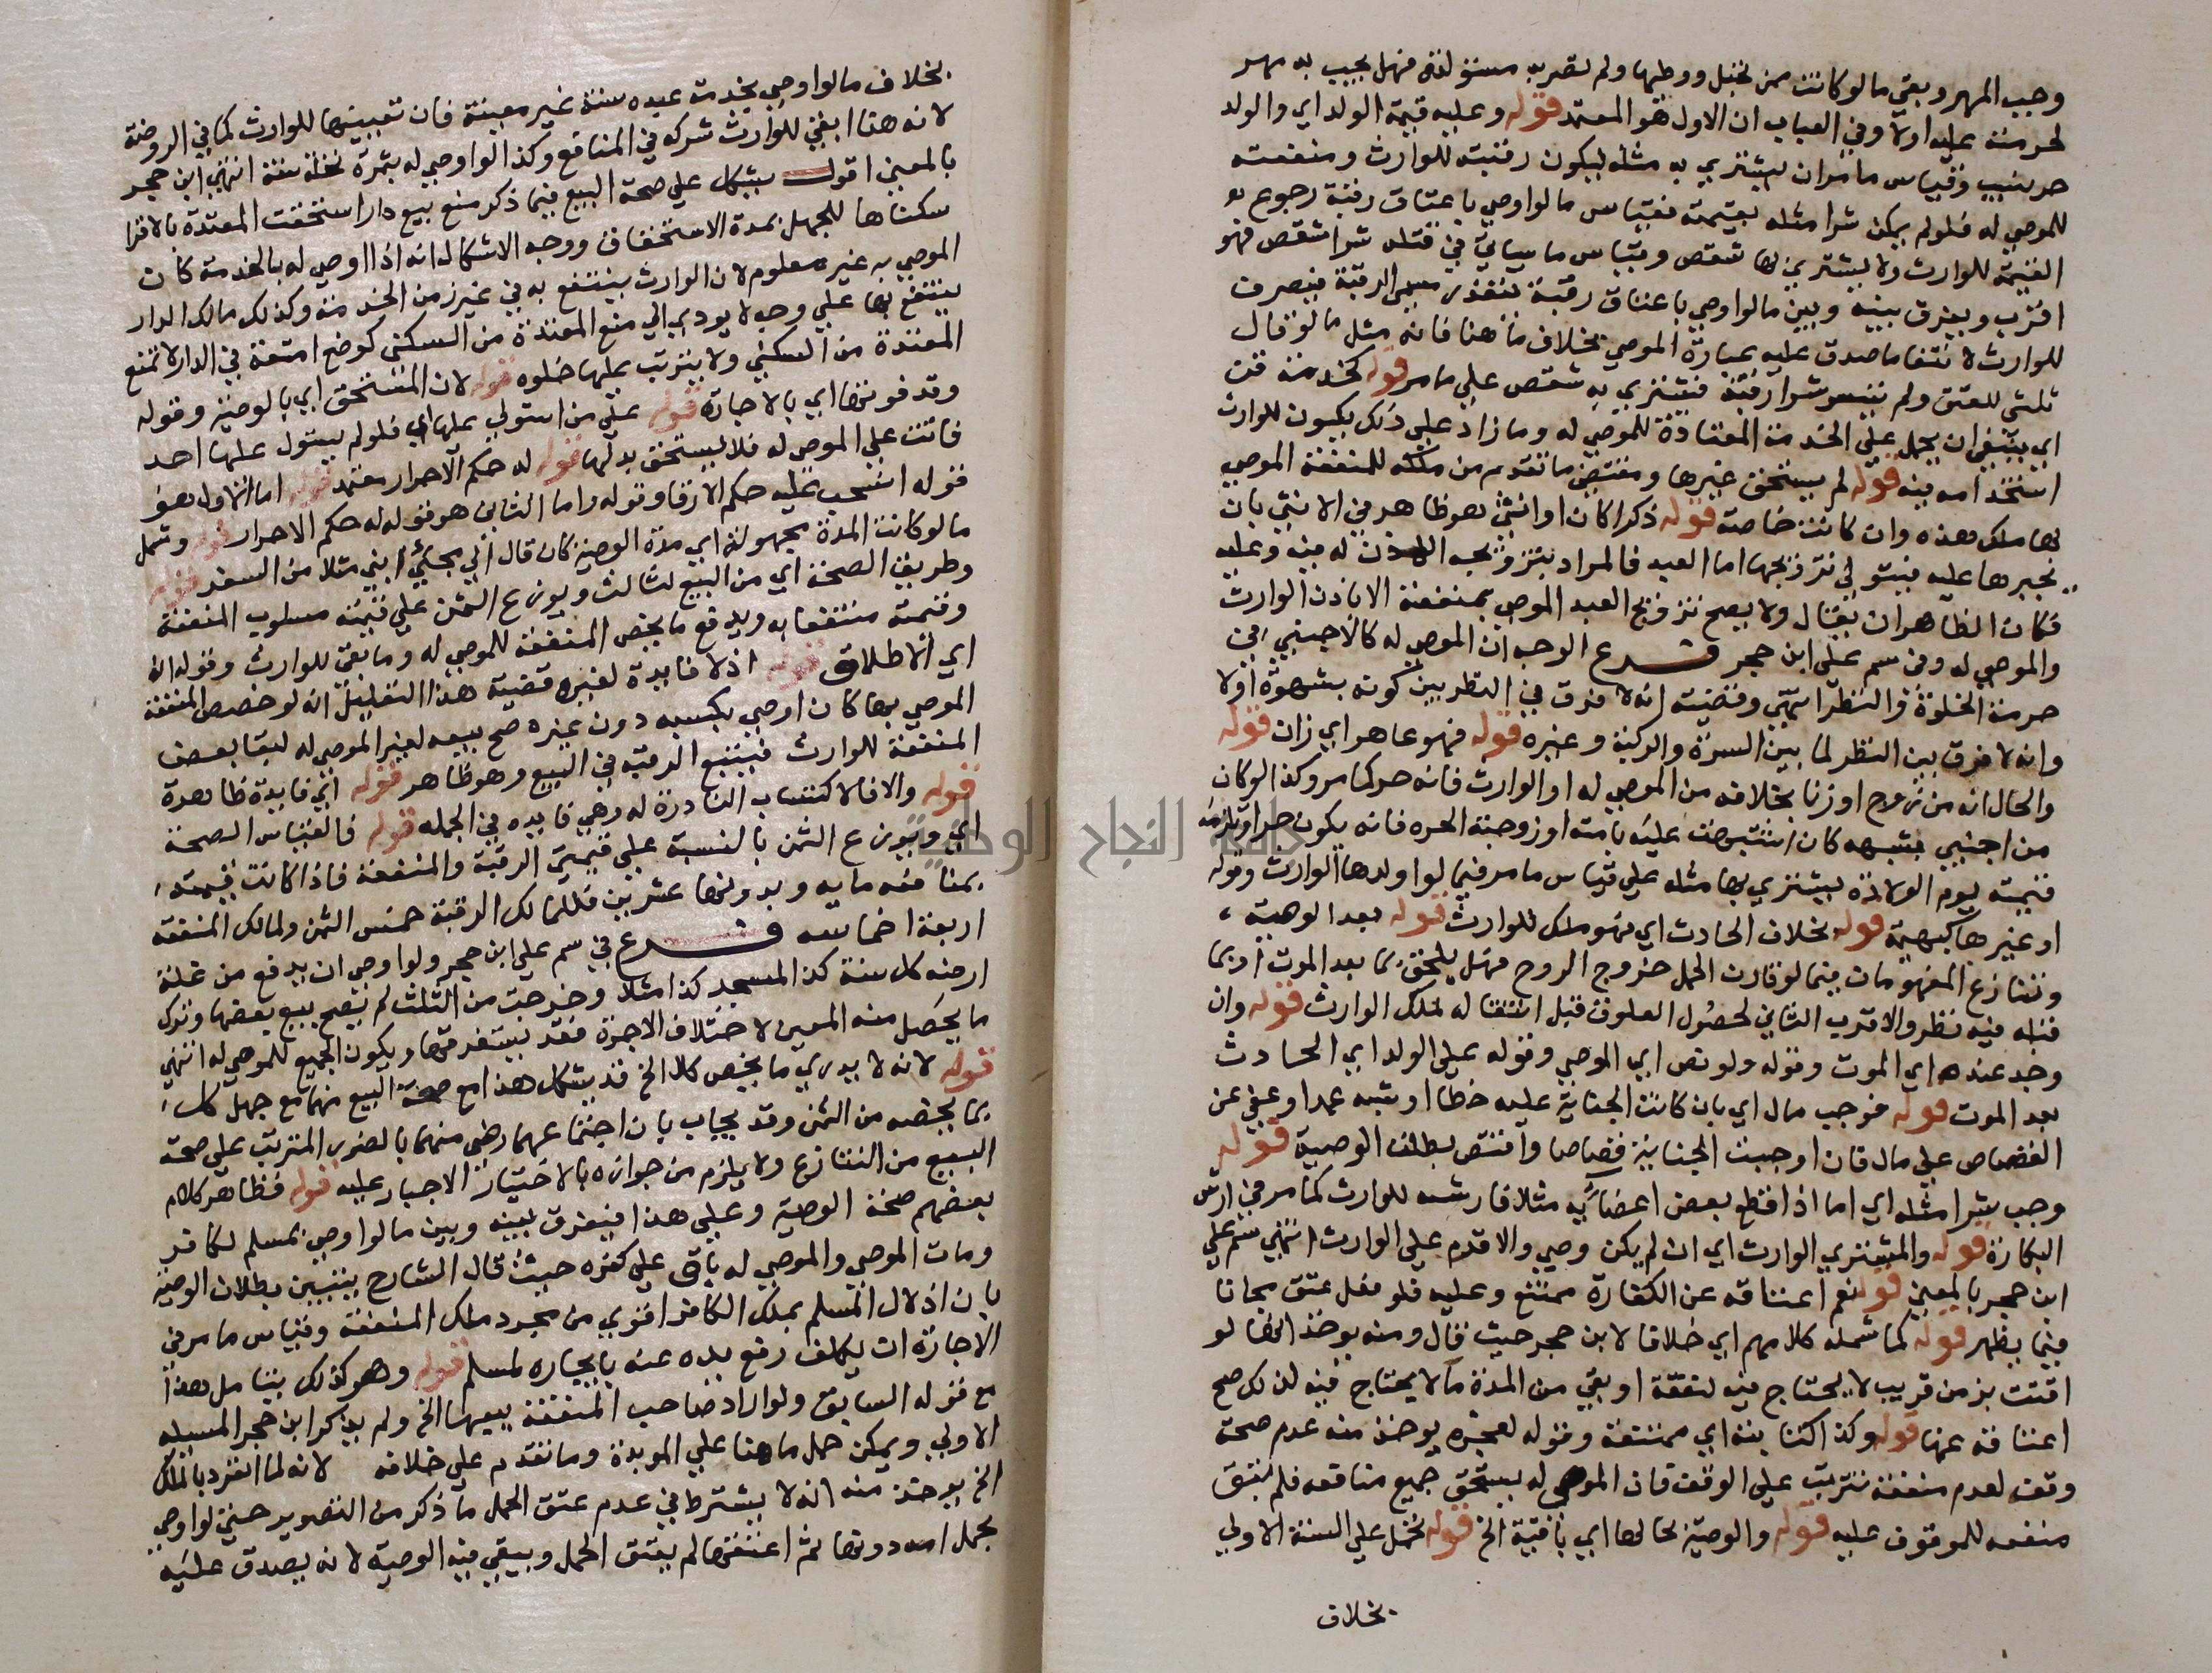 وجب المهر وبقي ما لو كانت ممن تحبل ووطيها ولم تصر به مستولدة فهل يجب به مهر
لحرمته عليه اولا وفي العباب ان الاول هو المعتمد قوله وعليه قيمة الولد اي والولد
حر نسيب وقياس ما مر ان يشتري به مثله ليكون رقبته للوارث ومنفعته
للموصي له فلو لم يمكن شرا مثله بقيمته فقياس ما لو اوصي باعتاق رقبة رجوع
القيمة للوارث ولا يشتري بها شقص وقياس ما سياتي في قتله شرا شقص فهو
اقرب ويفرق بينه وبين ما لو اوصي باعتاق رقبة لتعذر مسمى الرقبة فيصرف
للوارث لانتفا ما صدق عليه عبارة الموصي بخلاف ما هنا فانه مثل ما لو قال
ثلثي للعتق ولم يتيسر شرا رقبة فيشتري به شقص علي ما مر قوله كخدمة قن
اي ينبغي ان يحمل علي الخدمة المعتادة للموصي له وما زاد علي ذلك يكون للوارث
استخدامه فيه قوله لم يستحق غيرها ومقتضي ما تقدم من ملكه للمنفعة الموصي
بها ملك هذه وان كانت خاصة قوله ذكرا كان او انثى هو ظاهر في الانثي بان
يجبرها عليه فيتولي تزويجها اما العبد فالمراد بتزويجه الاذن له فيه وعليه
فكان الظاهر ان يقال ولا يصح تزويج العبد الموصي بمنفعته الا باذن الوارث
والموصي له وفي سم علي ابن حجر فرع الوجه ان الموصي له كالاجنبي في
حرمة الخلوة والنظر انتهي وقضيته انه لا فرق في النظر بين كونه بشهوة اولا
وانه لا فرق بين النظر لما بين السرة والركبة وغيره قوله فهو عاهر اي زان قوله
والحال انه من تزوج او زنا بخلافه من الموصي له او الوارث فانه حر كما مر وكذا لو كان
من اجنبي بشبهه كان اشتبهت عليه بامته او زوجته الحره فانه يكون حرا وتلزمه
قيمته يوم الولادة يشتري بها مثله علي قياس ما مر فيما لو اولدها الوارث وقوله
او غيرها كبهيمة قوله بخلاف الحادث اي فهو ملك للوارث قوله بعد الوصية
وتنازع المفهومات فيما لو قارن الحمل خروج الروح فهل يلحق بما بعد الموت او بما
قبله فيه نظر والاقرب الثاني لحصول العلوق قبل انتقاله لملك الوارث قوله وان
وجد عنده اي الموت وقوله ولو نص اي الموصي وقوله علي الولد اي الحادث
بعد الموت قوله فوجب مال اي بان كانت الجناية عليه خطا او شبه عمد او عفي عن
القصاص علي مال فان اوجبت الجناية قصاصا واقتص بطلت الوصية قوله
وجب شرا مثله اي اما اذا قطع بعض اعضائه مثلا فارشه للوارث كما مر في ارش
البكارة قوله والمشتري الوارث اي ان لم يكن وصي والا قدم علي الوارث انتهي سم علي
ابن حجر بالمعني قوله نعم اعتاقه عن الكفارة ممتنع وعليه فلو فعل عتق مجانا
فيما يظهر قوله كما شمله كلامهم اي خلافا لابن حجر حيث قال ومنه يوخذ انها لو
اقتت بزمن قريب لا يحتاج فيه لنفقة او بقي من المدة ما لا يحتاج فيه لذلك صح
اعتاقه عنها قوله وكذا كتابته اي ممتنعة وقوله لعجزه يوخذ منه عدم صحة
وقفه لعدم منفعة تترتب علي الوقف فان الموصي له يستحق جميع منافعه فلم تبق
منفعه للموقوف عليه قوله والوصية بحالها اي باقية الخ قوله تحمل علي السنة الاولي
بخلاف
بخلاف ما لو اوصي بخدمة عبده سنة غير معينة فان تعيينها للوارث كما في الروضة
لانه هنا ابقي للوارث شركه في المنافع وكذا لو اوصي له بثمرة نخلة سنة انتهي ابن حجر
بالمعني اقول يشكل علي صحة البيع فيما ذكر منع بيع دار استحقت المعتدة بالاقرا
سكناها للجهل بمدة الاستحقاق ووجه الاشكال انه اذا اوصي له بالخدمة كان
الموصي به غير معلوم لان الوارث ينتفع به في غير زمن الخدمة وكذلك مالك الدار
ينتفع بها علي وجه لا يودي الي منع المعتدة من السكنى كوضع امتعة في الدار لا تمنع
المعتدة من السكني ولا يترتب عليها خلوه قوله لان المستحق اي بالوصية وقوله
وقد فوتها اي بالاجارة قوله علي من استولي عليها اي فلو لم يستول عليها احد
فاتت علي الموصي له فلا يستحق بدلها قوله له حكم الاحرار معتمد قوله اما الاول هو
قوله انسحب عليه حكم الارقا وقوله واما الثاني هو قوله له حكم الاحرار قوله وشمل
ما لو كانت المدة مجهولة اي مدة الوصية كان قال الي مجئ ابني مثلا من السفر قوله
وطريق الصحة اي من البيع لثالث ويوزع الثمن علي قيمته مسلوب المنفعة
وقيمته منتفعا به ويدفع ما يخص المنفعة للموصي له وما بقي للوارث وقوله ان
اي الاطلاق قوله اذ لا فايدة لغيره قضية هذا التعليل انه لو خصص المنفعة
الموصي بها كان اوصي بكسبه دون غيره صح بيعه لغير الموصي له لبقا بعض
المنفعة للوارث فيتبع الرقبة في البيع وهو ظاهر قوله اي فايدة ظاهرة
قوله والا فالاكتساب النادرة له وهي فايده في الجمله قوله فالقياس الصحة
اي ويوزع الثمن بالنسبة علي قيمتي الرقبة والمنفعة فاذا كانت قيمته
بمنافعه مايه وبدونها عشرين فلمالك الرقبة خمس الثمن ولمالك المنفعة
اربعة اخماسه فرع في سم علي ابن حجر ولو اوصي ان يدفع من غلة
ارضه كل سنة كذا لمسجد كذا مثلا وخرجت من الثلث لم يصح بيع بعضها وترك
ما يحصل منه المعين لاختلاف الاجرة فقد يستغرقها ويكون الجميع للموصي له انتهي
قوله لانه لا يدري ما يخص كلا الخ قد يشكل هذا مع صحة البيع منهما مع جهل كل
بما يخصه من الثمن وقد يجاب بان اجتماعهما رضي منهما بالضرر المترتب علي صحة
البيع من التنازع ولا يلزم من جوازه بالاختيار الاجبار عليه قوله فظاهر كلام
بعضهم صحة الوصية وعلي هذا فيفرق بينه وبين ما لو اوصي بمسلم لكافر
ومات الموصي والموصي له باق علي كفره حيث قال الشارح يتبين بطلان الوصية
بان اذلال المسلم بملك الكافر اقوي من مجرد ملك المنفعة وقياس ما مر في
الاجارة ان يكلف رفع يده عنه بايجاره لمسلم قوله وهو كذلك يتامل هذا
مع قوله السابق ولو اراد صاحب المنفعة بيعها الخ ولم يذكر ابن حجر المسيله
الاولي ويمكن حمل ما هنا علي الموبدة وما تقدم علي خلافه لانه لما انفرد بالملك
الخ يوخذ منه انه لا يشترط في عدم عتق الحمل ما ذكر من التصوير حتي لو اوصي
بحمل امه دونها ثم اعتقها لم يعتق الحمل وبقي فيه الوصية لانه يصدق عليه